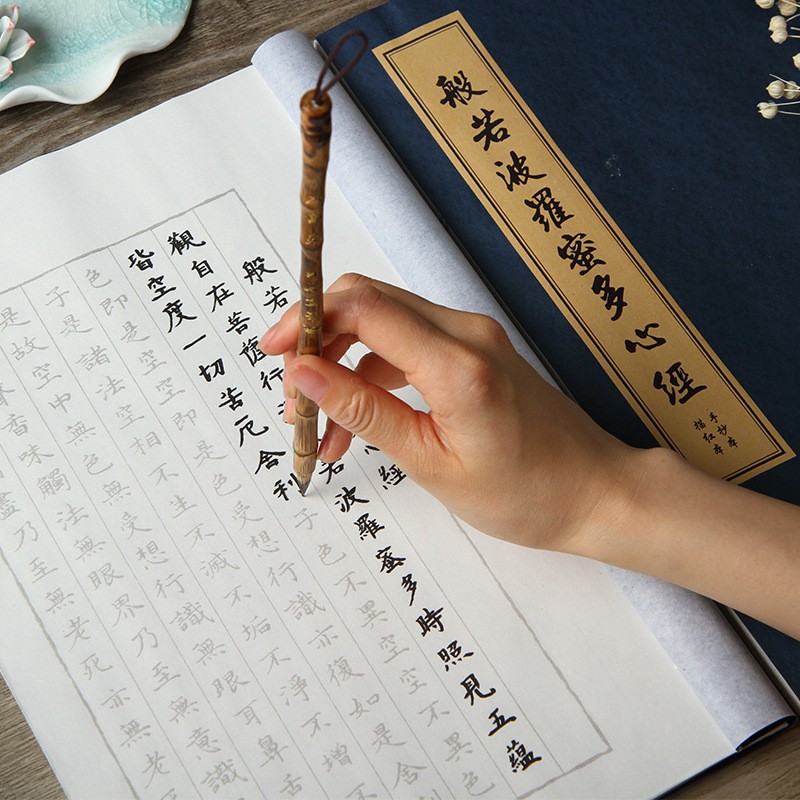 般若波羅蜜多心經
手抄本
描红本
般若
心經
觀自在菩薩行
若波羅蜜多時照見五蘊
皆空度一切苦厄舍利子色不異空空不異色
色即是空空即是色受想行識亦復如是舍利
子是諸法空相不生不滅不垢不淨不增
是故空中無色無受想行識無眼耳鼻舌
香味觸法無眼界乃至無意識
盡乃至無老死亦無老